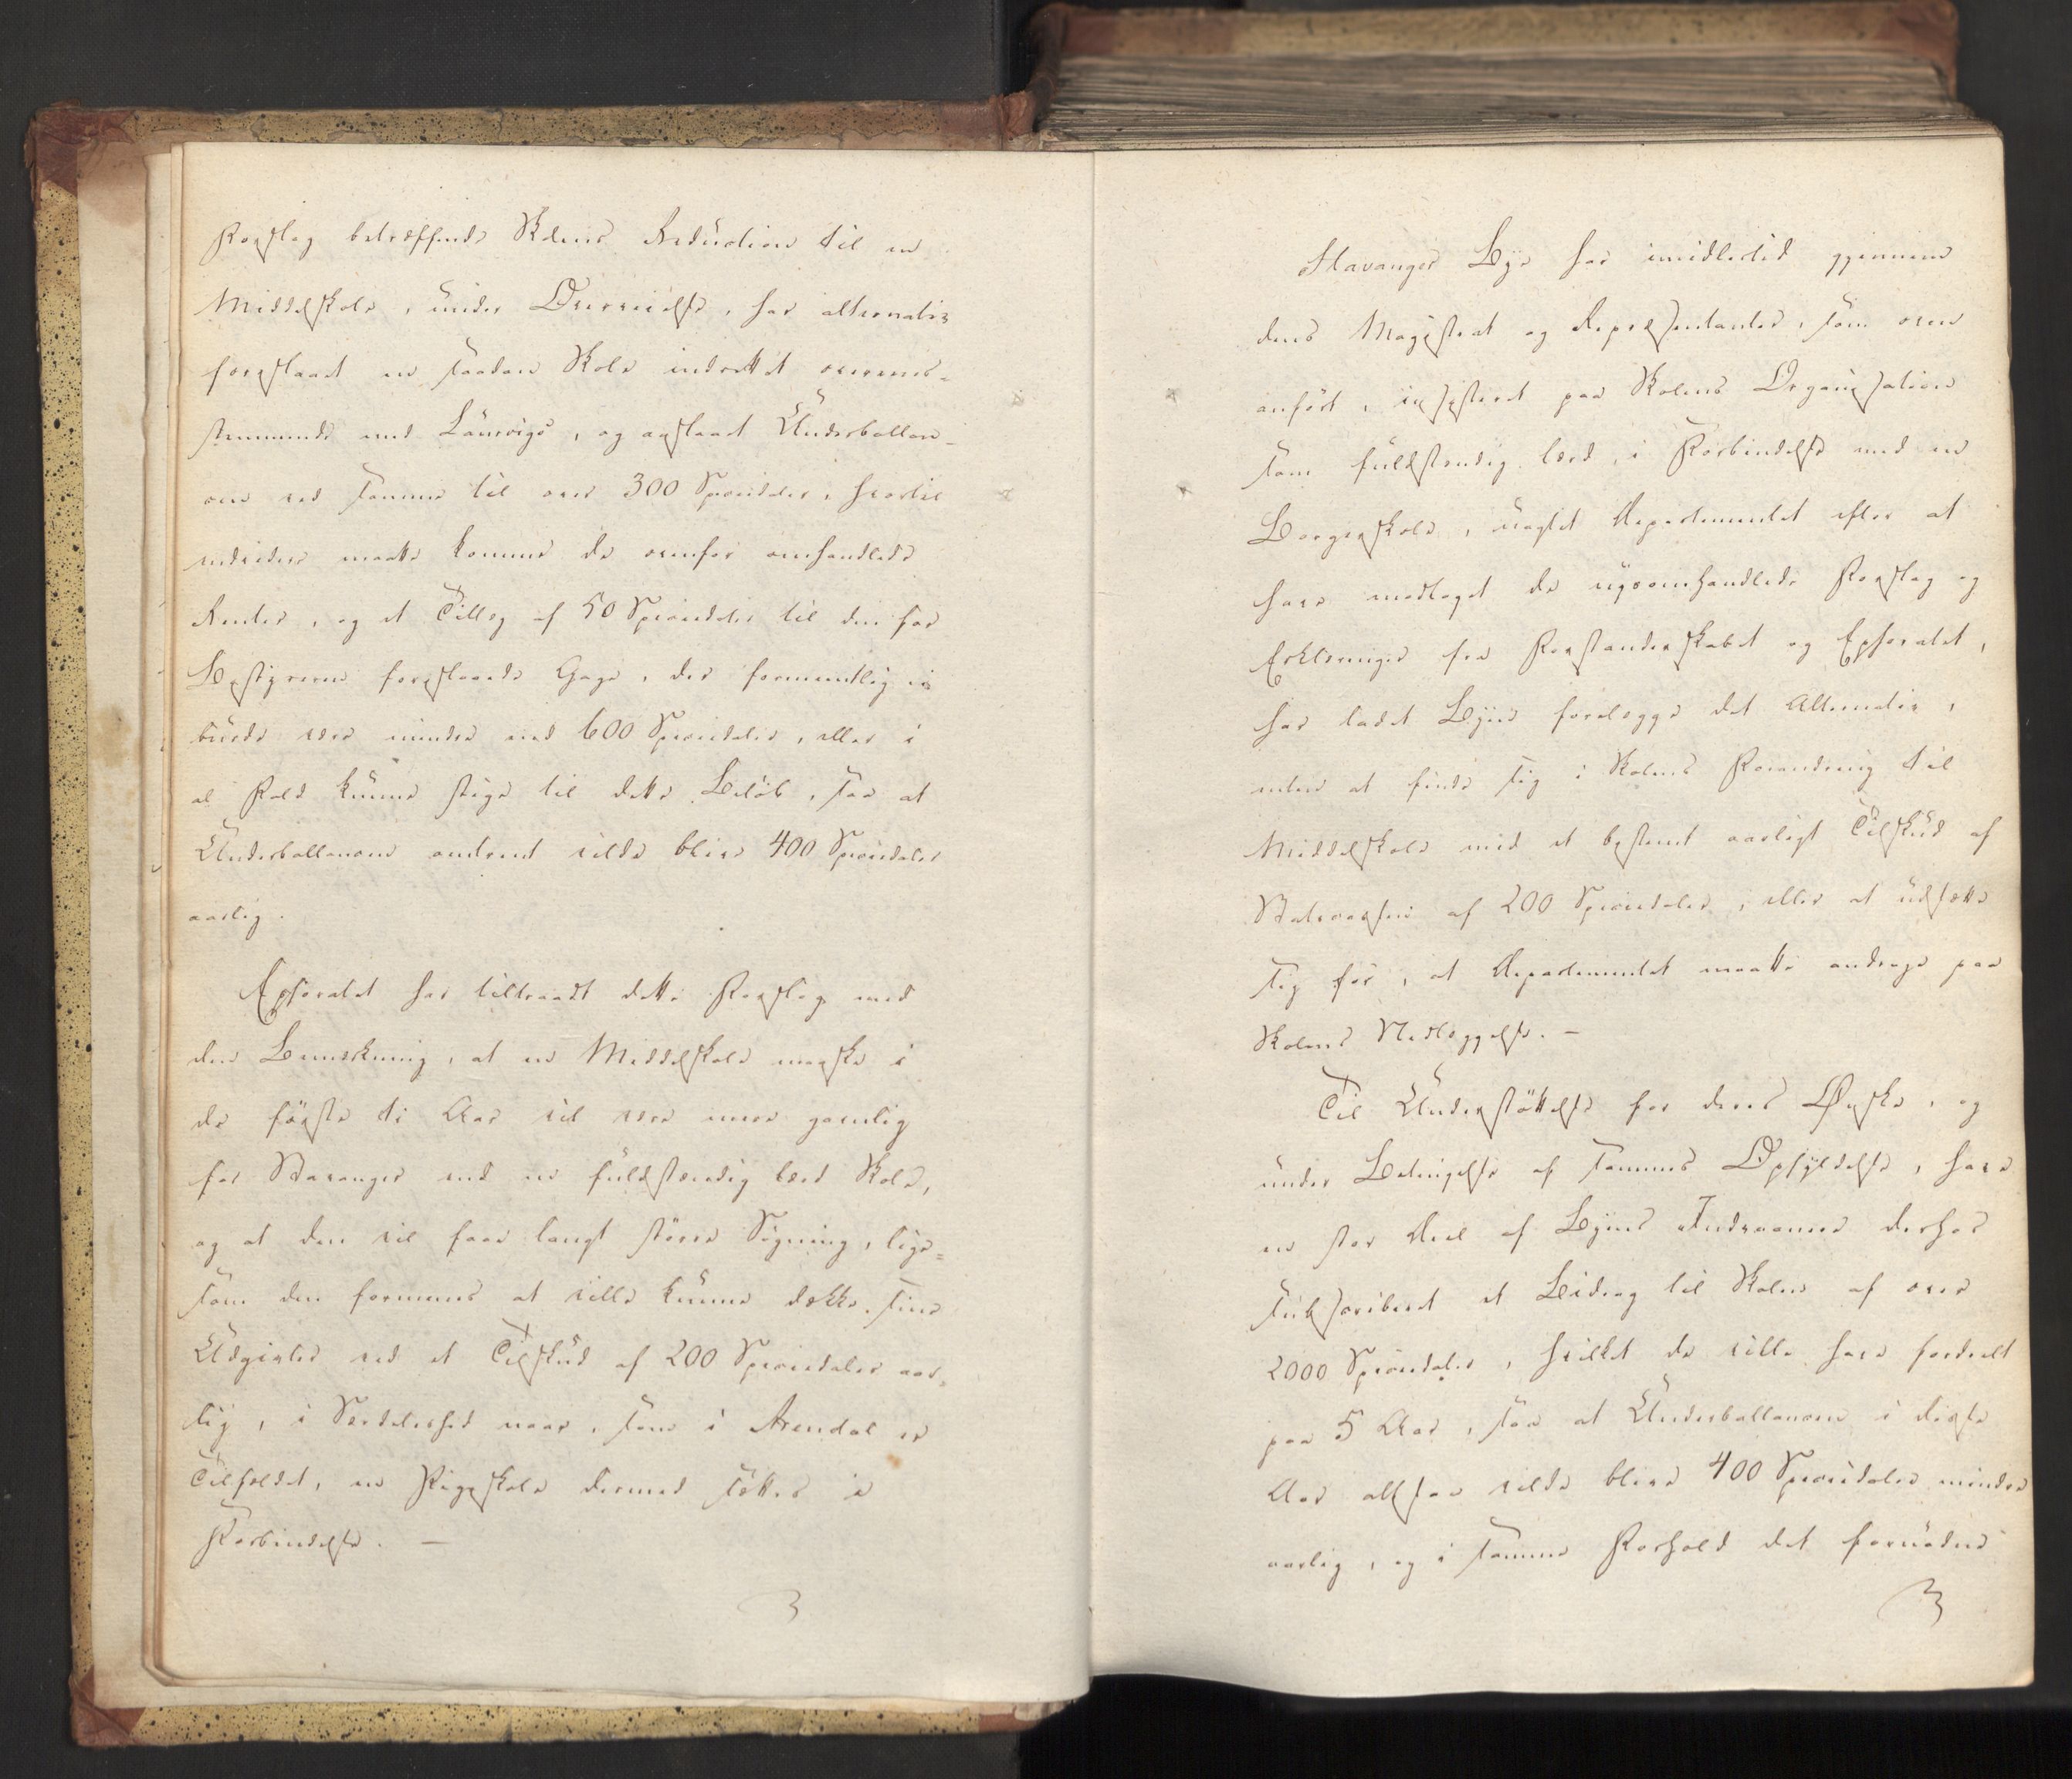 Forslag betræffende Skolens Reduction til en
Middelskole, under Overveielse, har alternativ
foreslaaet en saadan Skole indrettet overeens-
stemmende med Laurvigs, og anslaaet Underballan-
cen ved samme til over 300 Speciedaler, hvortil
endvidere maatte komme de ovenfor omhandlede
Renter, og et Tillæg af 50 Speciedaler til den for
Bestyreren foreslaaede Gage, der formeentlig ei
burde være mindre end 600 Speciedaler, eller i
al Fald kunne stige til dette Beløb, saa at
Underballancen omtrent vilde blive 400 Speciedaler
aarlig.
Ephoratet har tiltraadt dette Forslag med
den Bemærkning, at en Middelskole maaske i
de første ti Aar vil være mere gavnlig
for Stavanger end en fuldstændig lærd Skole,
og at den vil faae langt større Søgning, lige-
som den formenes at ville kunne dække sine
Udgivter ved et Tilskud af 200 Speciedaler aar-
lig, i Særdeleshed naar, som i Arendal er
Tilfældet, en Pigeskole dermed sættes i
Forbindelse. —
Stavanger Bye har imidlertid gjennem
dens Magistrat og Repræsentanter, som oven
anført, insisteret paa Skolens Organisation
som fuldstændig lærd, i Forbindelse med en
Borgerskole, uagtet Departementet efter at
have modtaget de nysomhandlede Forslag og
Erklæringer fra Forstanderskabet og Ephoratet,
har ladet Byen forelægge det Alternativ,
enten at finde sig i Skolens Forandring til
Middelskole med et bestemt aarligt Tilskud af
Statscassen af 200 Speciedaler, eller at udsætte
sig for, at Departementet maatte andrage paa
Skolens Nedlæggelse. —
Til Understøttelse for deres Ønske, og
under Betingelse af sammes Opfyldelse, have
en stor Deel af Byens Indvaanere derhos
subscriberet et Bidrag til Skolen af over
2000 Speciedaler, hvilket de ville have fordeelt
paa 5 Aar, saa at Underballancen i disse
Aar altsaa vilde blive 400 Speciedaler mindre
aarlig, og i samme Forhold det fornødne